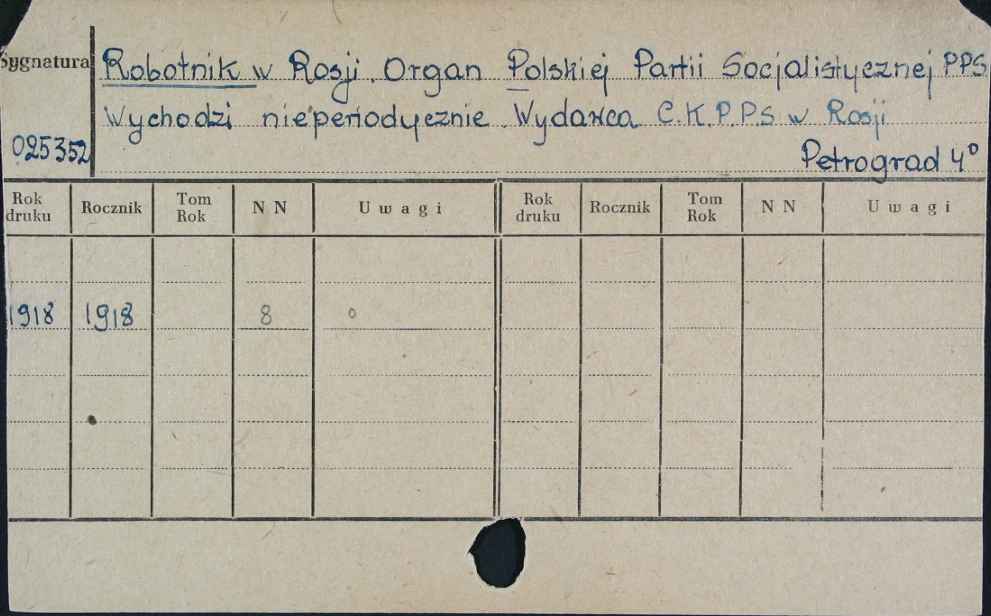 Sygnatura
Robotnik w Rosji. Organ Polskiej Partii Socjalistycznej PPS
Wychodzi nieperiodycznie. Wydawca C.K.P.P.S w Rosji
025352
Petrograd 4°
Rok druku Rocznik Tom Rok N N Uwagi Rok druku Rocznik Tom Rok N N Uwagi
1918 1918 8 o